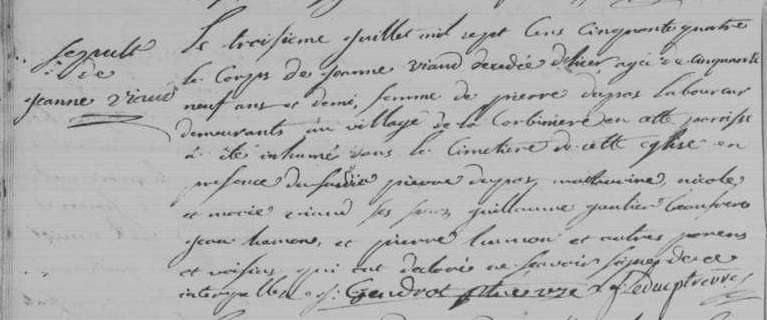 sepult
de
jeanne viaud
Le troisieme juillet mil sept Cens Cinquante quatre
le Corps de jeanne viaud decedée d'hier agée de cinquante
neuf ans et demi, femme de pierre dupas laboureur
demeurants au village de la Corbiniere en cette paroisse
à été inhumé dans le Cimetiere de cette eglise en
presence dudit pierre dupas, mathurine, nicole,
et marie viaud ses sœurs, guillaume gautier beaufrere
jean hamon, et pierre hamon et autres parens
et voisins, qui ont declaré ne scavoir signer de ce
interpellés